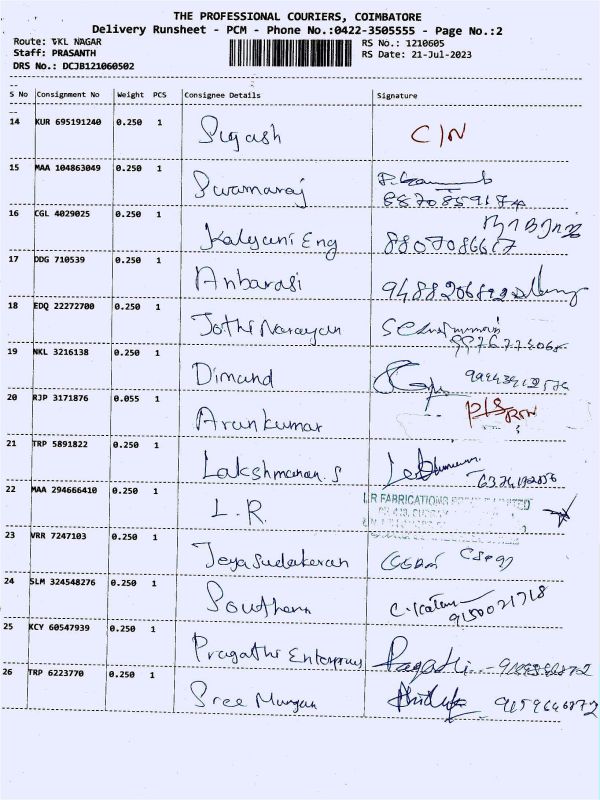 THE PROFESSIONAL COURIERS, COIMBATORE
Delivery Runsheet - PCM - Phone No.:0422-3505555 - Page No.:2
Route: TKL NAGAR
RS No.: 1210605
Staff: PRASANTH
RS Date: 21-Jul-2023
DRS No.: DCJB121060502
S No Consignment No Weight PCS Consignee Details Signature
14 KUR 695191240 0.250 1 Sugash C/N
15 MAA 104863049 0.250 1 Swarnaraj
8870859174
16 CGL 4029025 0.250 1 Kalyani Eng 8807086617
17 DDG 710539 0.250 1 Anbarasi
18 EDQ 22272700 0.250 1 Jothi Narayan
19 NKL 3216138 0.250 1 Dimand
20 RJP 3171876 0.055 1 Arunkumar
21 TRP 5891822 0.250 1 Lakshmanan.S
22 MAA 294666410 0.250 1 L.R.
L.R FABRICATIONS
23 VRR 7247103 0.250 1 Jeyasudakaran
24 SLM 324548276 0.250 1 Southern
9150021718
25 KCY 60547939 0.250 1 Pragathi Enterprises Pragathi
26 TRP 6223770 0.250 1 Sree Murugan 9159646872